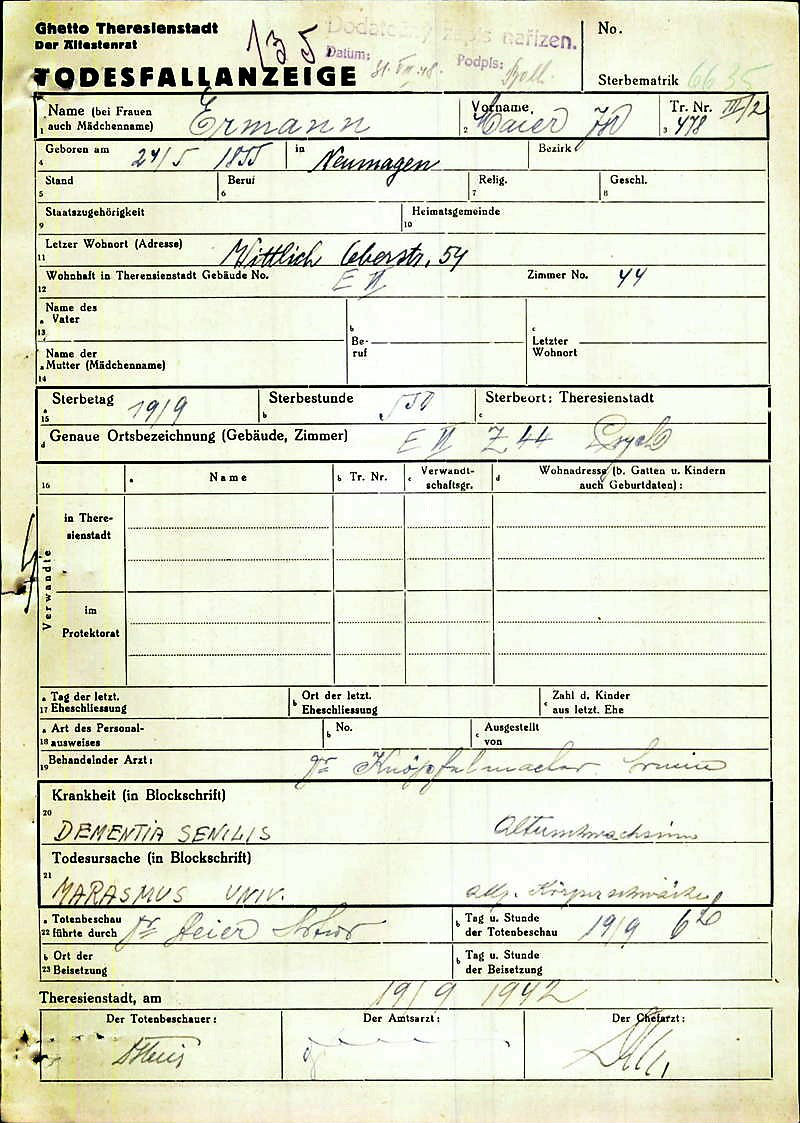 Ghetto Theresienstadt
Der Ältestenrat
TODESFALLANZEIGE
135
Dodatečný zápis nařízen.
Datum: 31. VII. 48. Podpis:
No.
Sterbematrik 6635
Name (bei Frauen auch Mädchenname) Ermann
1
Vorname Maier
2
Tr. Nr. III/2
3 478
Geboren am 24/5 1855 in Neumagen Bezirk
4
Stand Beruf Relig. Geschl.
5 6 7 8
Staatszugehörigkeit Heimatsgemeinde
9 10
Letzer Wohnort (Adresse) Wittlich Oberstr. 54
11
Wohnhaft in Therensienstadt Gebäude No. E VI Zimmer No. 44
12
Name des
a Vater
13
b
Be-
ruf
c
Letzter
Wohnort
Name der
a Mutter (Mädchenname)
14
Sterbetag 19/9 Sterbestunde 530 Sterbeort: Theresienstadt
a
15 b c
d Genaue Ortsbezeichnung (Gebäude, Zimmer) E VI Z 44
16 a Name b Tr. Nr. c Verwandt-
schaftsgr. d Wohnadresse (b. Gatten u. Kindern
auch Geburtdaten):
Verwandte
in There-
sienstadt
im
Protektorat
a Tag der letzt.
17 Eheschliessung
b Ort der letzt.
Eheschliessung
c Zahl d. Kinder
aus letzt. Ehe
a Art des Personal-
18 ausweises
b No.
c Ausgestellt
von
19 Behandelnder Arzt: Dr Knöpfelmacher
Krankheit (in Blockschrift)
20
DEMENTIA SENILIS Altersschwachsinn
Todesursache (in Blockschrift)
21
MARASMUS UNIV. allg. Körperschwäche
a Totenbeschau
22 führte durch Dr
b Tag u. Stunde
der Totenbeschau 19/9
b Ort der
23 Beisetzung
b Tag u. Stunde
der Beisetzung
Theresienstadt, am 19/9 1942
Der Totenbeschauer: Der Amtsarzt: Der Chefarzt: